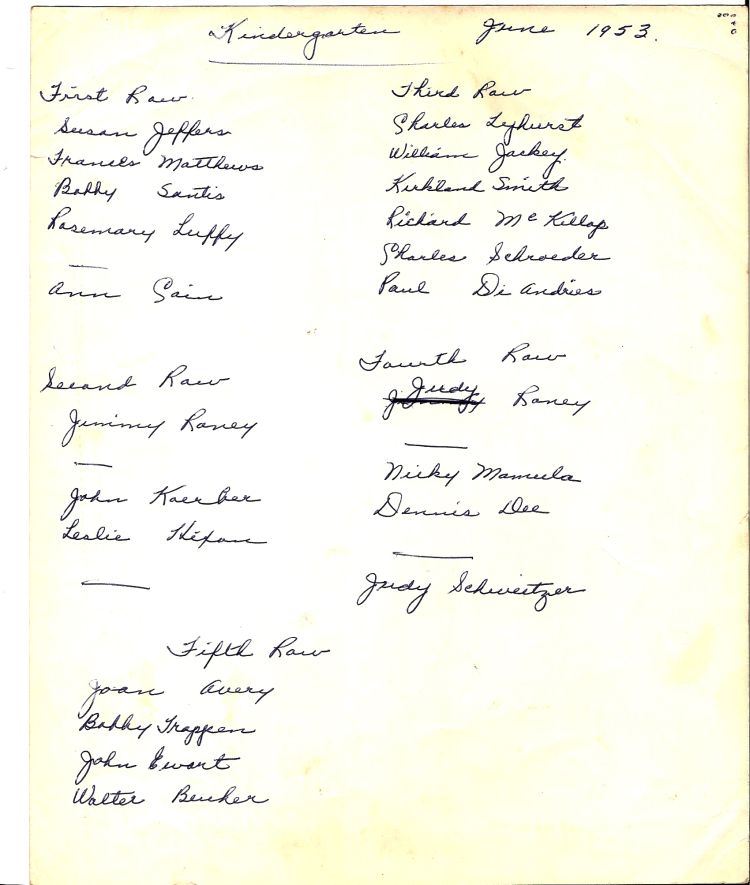 Kindergarten June 1953.
First Row
Susan Jeffers
Frances Matthews
Bobby Santis
Rosemary Luffy
Ann Cain
Second Row
Jimmy Raney
John Kaerber
Leslie Hixon
Third Row
Charles Lyhurst
William Jackey
Kirkland Smith
Richard McKillop
Charles Schroeder
Paul Di Andries
Fourth Row
Judy Raney
Nicky Mamula
Dennis Dee
Judy Schweitzer
Fifth Row
Joan Avery
Bobby Trappen
John Ewart
Walter Beuher